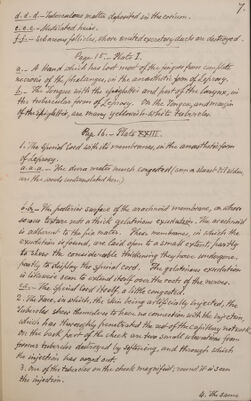 7
d.d.d. Tuberculous matter deposited in the corium.
e.e.e. Mutilated hairs.
f.f. Sebaceous follicles, whose united excretory ducts are destroyed.
Page 15 – Plate I.
a. A Hand which has lost most of the fingers from complete
necrosis of the phalanges, in the anaesthetic form of Leprosy.
b. The Tongue with the epiglottis and part of the larynx, in
the tubercular form of Leprosy. On the Tongue, and margin
of the epiglottis, are many yellowish-white tubercles.
Pag. 16 – Plate XXIII.
1. The Spinal Cord with its membranes, in the anaesthetic form
of Leprosy.
a.a.a. The dura mater much congested
b.b. The posterior surface of the arachnoid membrane, on whose
serous texture is a thick gelatinous exudation. The arachnoid
is adherent to the pia mater. These membranes, in which the
exudation is found, are laid open to a small extent, partly
to shew the considerable thickening they have undergone,
partly to display the spinal cord. The gelatinous exudation
is likewise seen to extend itself over the roots of the nerves.
c. The Spinal Cord itself, a little congested.
2. The Face, in which, the skin being artificially injected, the
tubercles shew themselves to have no connection with the injection,
which has thoroughly penetrated the rest of the capillary network.
On the back part of the cheek are two small ulcerations from
former tubercles destroyed by softening, and through which
the injection has oozed out.
3. One of the tubercles on the cheek magnified; round it is seen
the injection.
4. The same